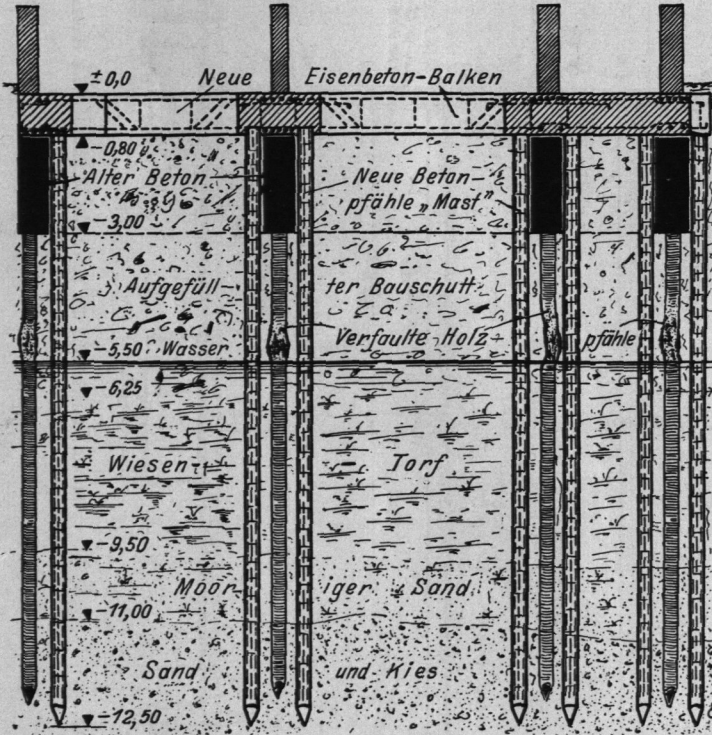 ± 0,0 Neue Eisenbeton-Balken
-0,80
Alter Beton Neue Beton-
pfähle „Mast"
-3,00
Aufgefüll- ter Bauschutt
Verfaulte Holz- pfähle
-5,50 Wasser
-6,25
Wiesen- Torf
-9,50
Moor- iger Sand
-11,00
Sand und Kies
-12,50